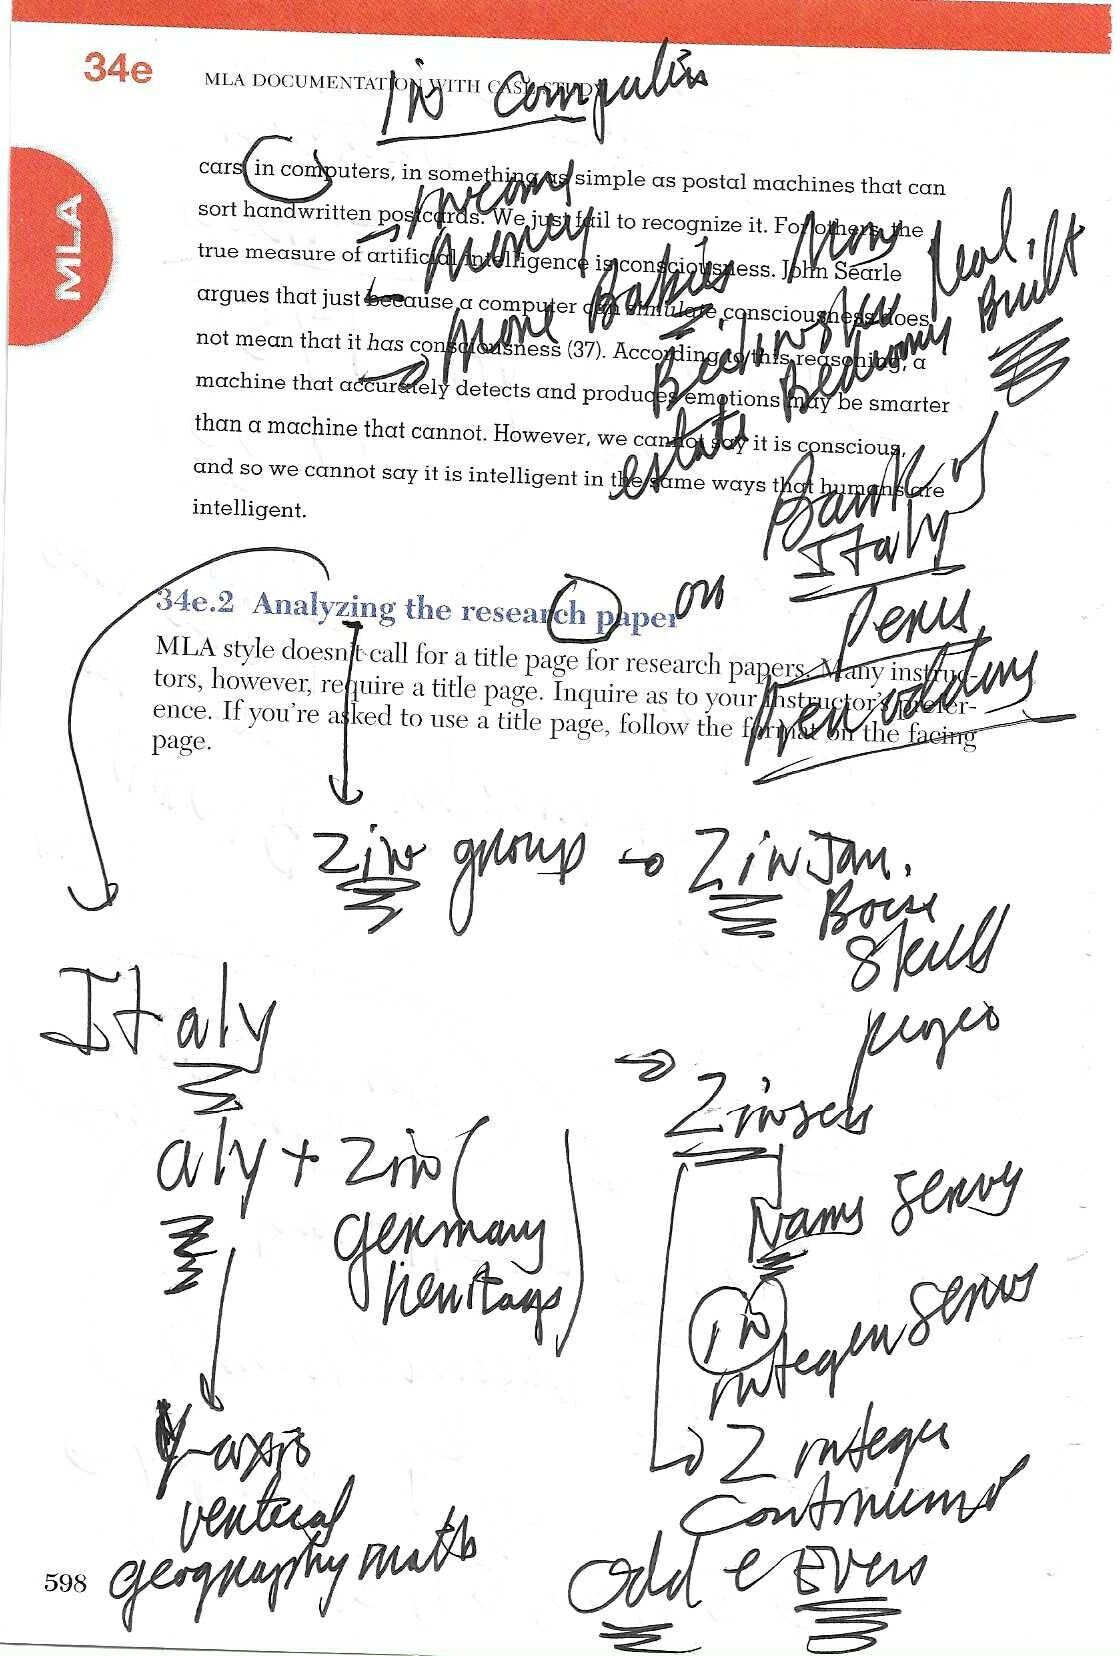 34e
MLA DOCUMENTATION WITH CASE STUDY
In
MLA
cars, in computers, in something as simple as postal machines that can
sort handwritten postcards. We just fail to recognize it. For others, the
true measure of artificial intelligence is consciousness. John Searle
argues that just because a computer can simulate consciousness does
not mean that it has consciousness (37). According to this reasoning, a
machine that accurately detects and produces emotions may be smarter
than a machine that cannot. However, we cannot say it is conscious,
and so we cannot say it is intelligent in the same ways that humans are
intelligent.
money
Real
estate
Built
Bank of
Italy
34e.2 Analyzing the research paper
on
MLA style doesn't call for a title page for research papers. Many instruc-
tors, however, require a title page. Inquire as to your instructor's prefer-
ence. If you're asked to use a title page, follow the format on the facing
page.
Zin group → Zin Jan.
Skull
Italy
→ Zinsers
aly + Zin (
Germany
)
In
Y-axis
Z integer
vertical
geography math
Odd e Evens
598